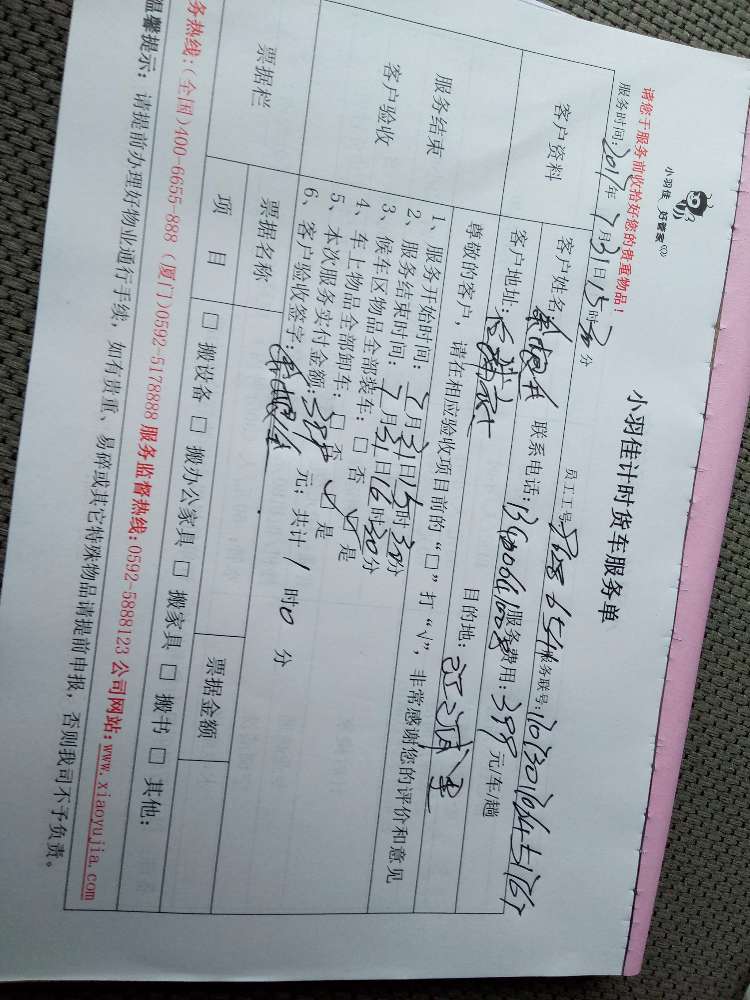 小羽佳 好管家
小羽佳计时货车服务单
请您于服务前收拾好您的贵重物品！
服务时间：2017年7月31日15时30分 员工工号 服务联号：
客户资料
客户姓名 联系电话： 服务费用：398元/车/趟
客户地址： 目的地：
服务结束
客户验收
尊敬的客户，请在相应验收项目前的“□”打“√”，非常感谢您的评价和意见
1、服务开始时间：7月31日15时30分
2、服务结束时间：7月31日16时30分
3、候车区物品全部装车：□ 否 √ 是
4、车上物品全部卸车：□ 否 √ 是
5、本次服务实付金额：398元；共计1时0分
6、客户验收签字：
票据栏
票据名称
票据金额
项 目
□ 搬设备 □ 搬办公家具 □ 搬家具 □ 搬书 □ 其他：
务热线：(全国)400-6655-888 (厦门)0592-5178888 服务监督热线：0592-5888123 公司网站：www.xiaoyujia.com
温馨提示：请提前办理好物业通行手续，如有贵重、易碎或其它特殊物品请提前申报，否则我司不予负责。